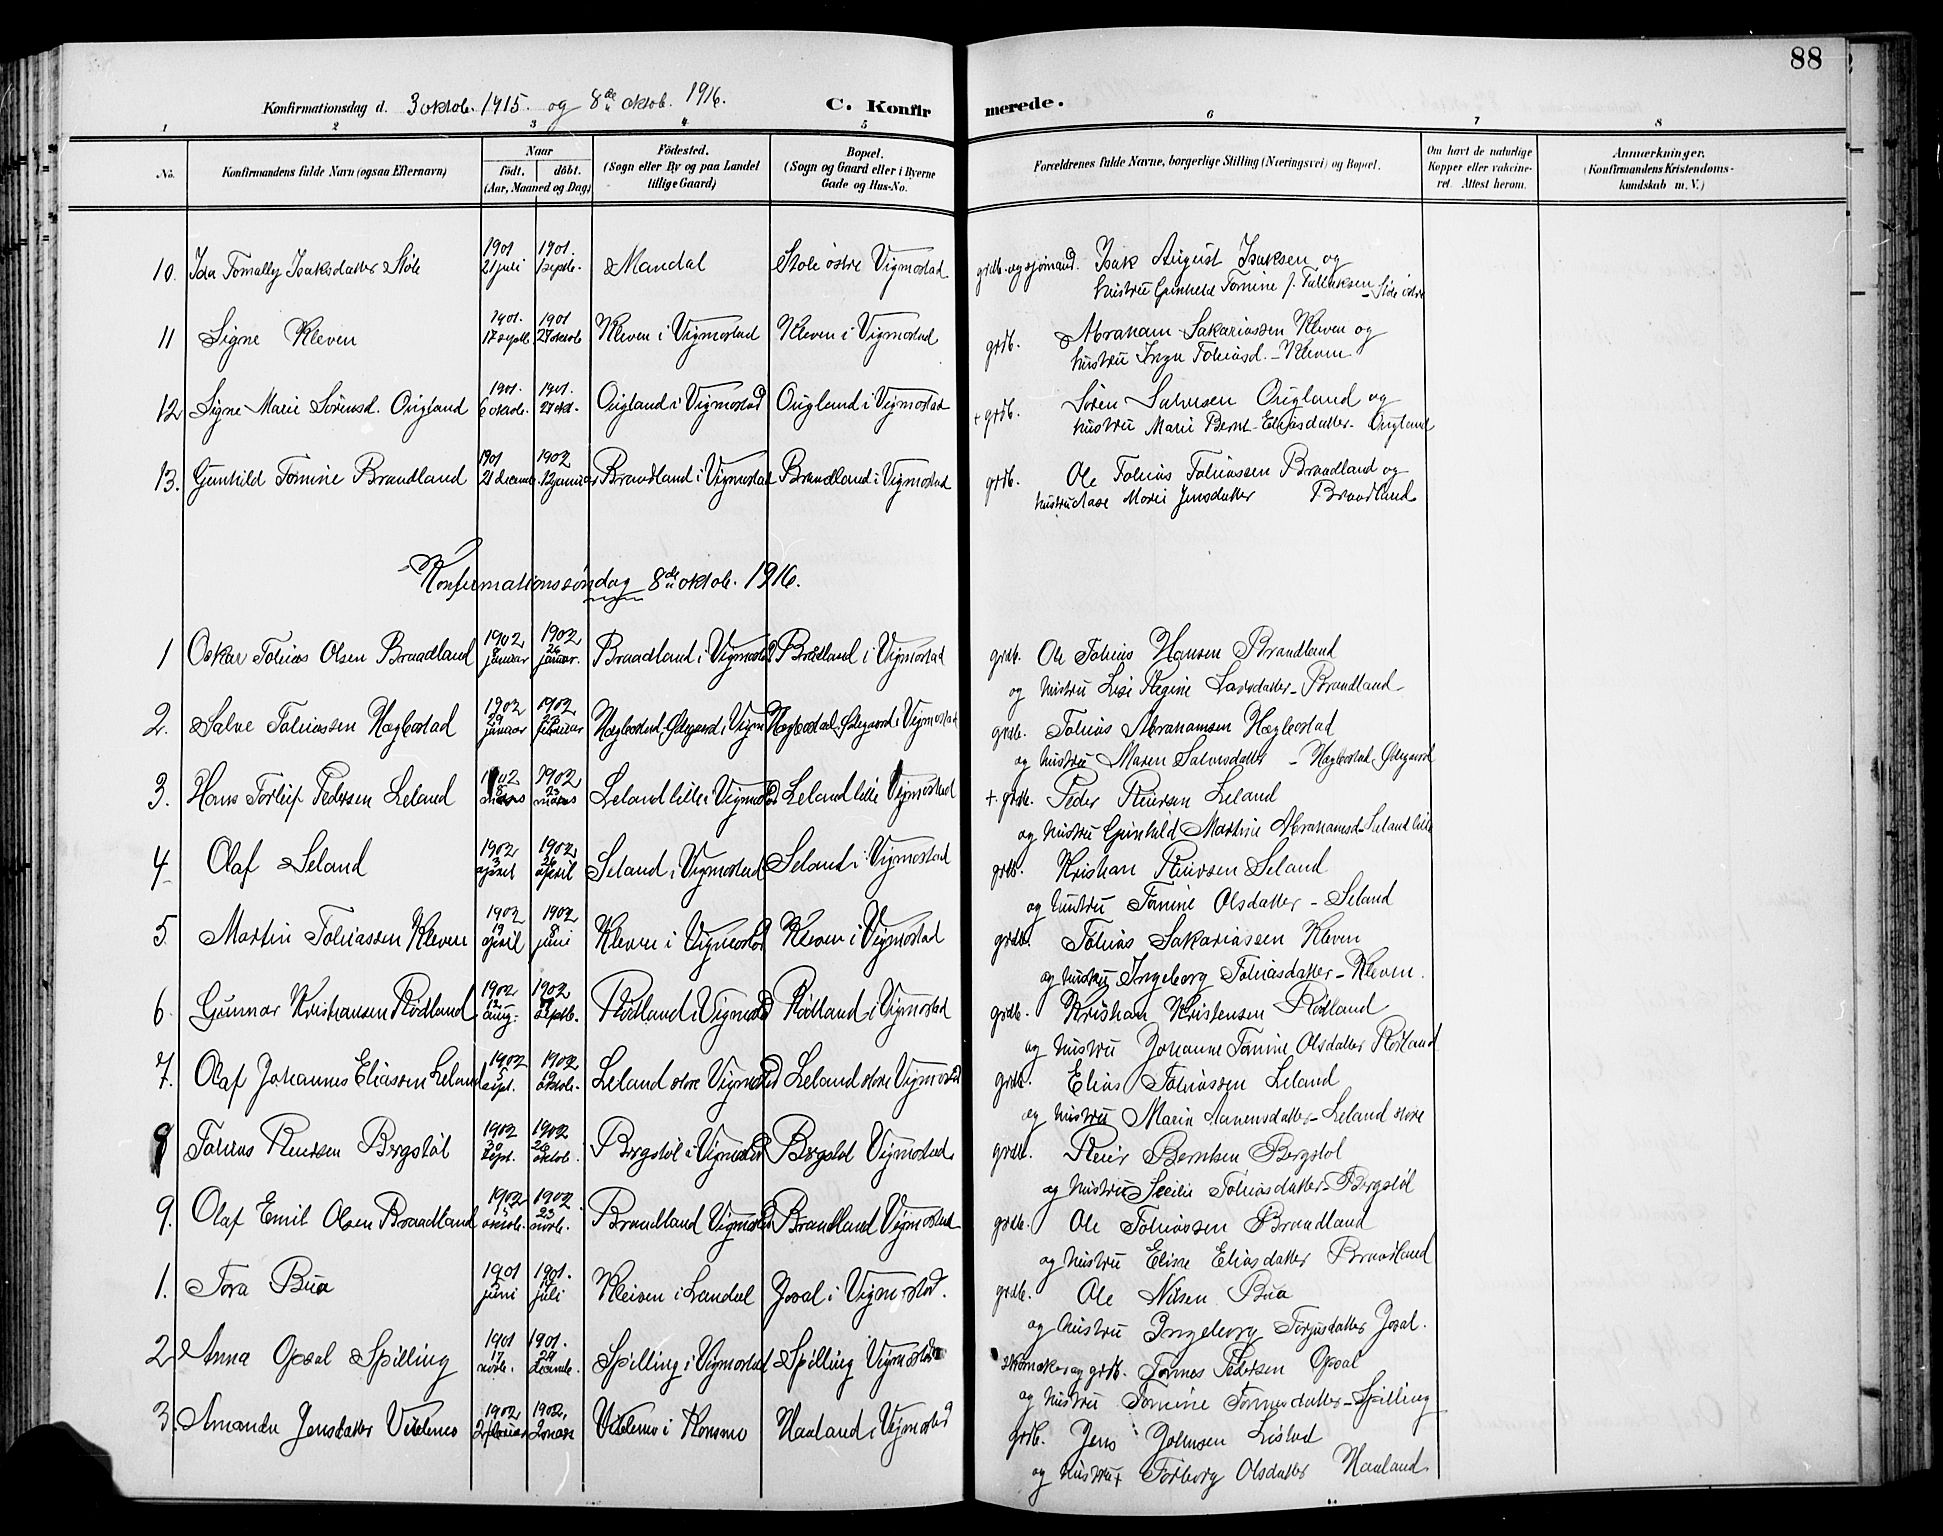 88
Konfirmationsdag d. 3 oktob. 1915. og 8de oktob. 1916. C. Konfir merede.
1 2 3 4 5 6 7 8
No.
Konfirmandens fulde Navn (ogsaa Efternavn)
Naar
født. døbt.
(Aar, Maaned og Dag)
Fødested.
(Sogn eller By og paa Landet
tillige Gaard)
Bopæl.
(Sogn og Gaard eller i Byerne
Gade og Hus-No.
Forældrenes fulde Navne, borgerlige Stilling (Næringsvei) og Bopæl.
Om havt de naturlige
Kopper eller vakcine-
ret. Attest herom.
Anmærkninger.
(Konfirmandens Kristendoms-
kundskab m. V.)
10. Ida Tomally Isaksdatter Støle 1901 21 juli 1901. 1 septb. Mandal Støle østre Vigmostad grdb. og sjømand. Isak August Isaksen og
hustru Gunhild Tomine f. Tallaksen - Støle østre
11 Signe Kleven 1901. 17 septb 1901 27 oktob Kleven i Vigmostad Kleven i Vigmostad grdb. Abraham Sakariassen Kleven og
hustru Inga Tobiasd. - Kleven
12 Signe Marie Sørensd. Øigland 1901. 6 oktob. 1901. 27 okt. Øigland i Vigmostad Øigland i Vigmostad + grdb. Søren Salvesen Øigland og
hustru Marie Bernt. Eliasdatter - Øigland
13. Gunhild Tomine Braadland 1901 21 decemb 1902 12 januar Braadland i Vigmostad Braadland i Vigmostad grdb. Ole Tobias Tobiassen Braadland og
hustru Aase Marie Jensdatter Braadland
Konfirmationssøndag 8de oktob. 1916.
1 Oskar Tobias Olsen Braadland 1902 8 januar 1902 26 januar. Braadland i Vigmostad Braadland i Vigmostad grdb. Ole Tobias Hansen Braadland
og hustru Lise Regine Larsdatter - Braadland
2. Salve Tobiassen Hægbostad 1902 29 januar 1902. februar Hægbostad Ødegaard i Vigmostad Hægbostad Ødegaard i Vigmostad grdb. Tobias Abrahamsen Hægbostad
og hustru Maren Salvesdatter - Hægbostad Ødegaard
3. Hans Torleif Pedersen Leland 1902 marts 1902 23 marts Leland lille i Vigmostad Leland lille Vigmostad + grdb. Peder Reiersen Leland
og hustru Gunhild Martine Abrahamsd. - Leland lille
4 Olaf Seland 1902 3 april 1902. 26 april Seland i Vigmostad Seland i Vigmostad grdb. Kristian Reiersen Seland
og hustru Tomine Olsdatter - Seland
5. Martin Tobiassen Kleven 1902 19 april 1902 8 juni Kleven i Vigmostad Kleven i Vigmostad grdb. Tobias Sakariassen Kleven
og hustru Ingeborg Tobiasdatter - Kleven.
6. Gunnar Kristiansen Rødland 1902 12 aug. 1902 septb. Rødland i Vigmostad Rødland i Vigmostad grdb. Kristian Kristensen Rødland
og hustru Johanne Tomine Olsdatter Rødland
7. Olaf Johannes Eliassen Leland 1902 5 sept. 1902 19 oktob. Leland store Vigmostad Leland store Vigmostad grdb. Elias Tobiassen Leland
og hustru Maria Aanensdatter - Leland store
8 Tobias Reiersen Bergstøl 1902 30 sept. 1902 26 oktob. Bergstøl i Vigmostad Bergstøl Vigmostad. grdb. Reier Berntsen Bergstøl
og hustru Secilie Tobiasdatter - Bergstøl
9. Olaf Emil Olsen Braadland 1902 5 oktob. 1902 23 novb. Braadland Vigmostad Braadland Vigmostad grdb. Ole Tobiassen Braadland
og hustru Elise Eliasdatter Braadland
1. Tora Bua 1901 juni 1901. juli Kleiven i Laudal Josal i Vigmostad. grdb. Ole Nilsen Bua
og hustru Ingeborg Torjusdatter Josal.
2. Anna Opsal Spilling 1901 17 novb. 1901. 29 decemb. Spilling i Vigmostad Spilling Vigmostad skomaker og grdb. Tomas Pedersen Opsal
og hustru Tomine Tomasdatter - Spilling
3. Amanda Jensdatter Vitlemo 1902 2 februar 1902, 2 mars Vitlemo i Konsmo Haaland i Vigmostad grdb. Jens Johnsen Listad
og hustru Torborg Olsdatter Haaland.